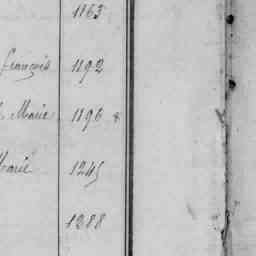 1163
françois 1192
Marie 1196 &
Marie 1245
1288